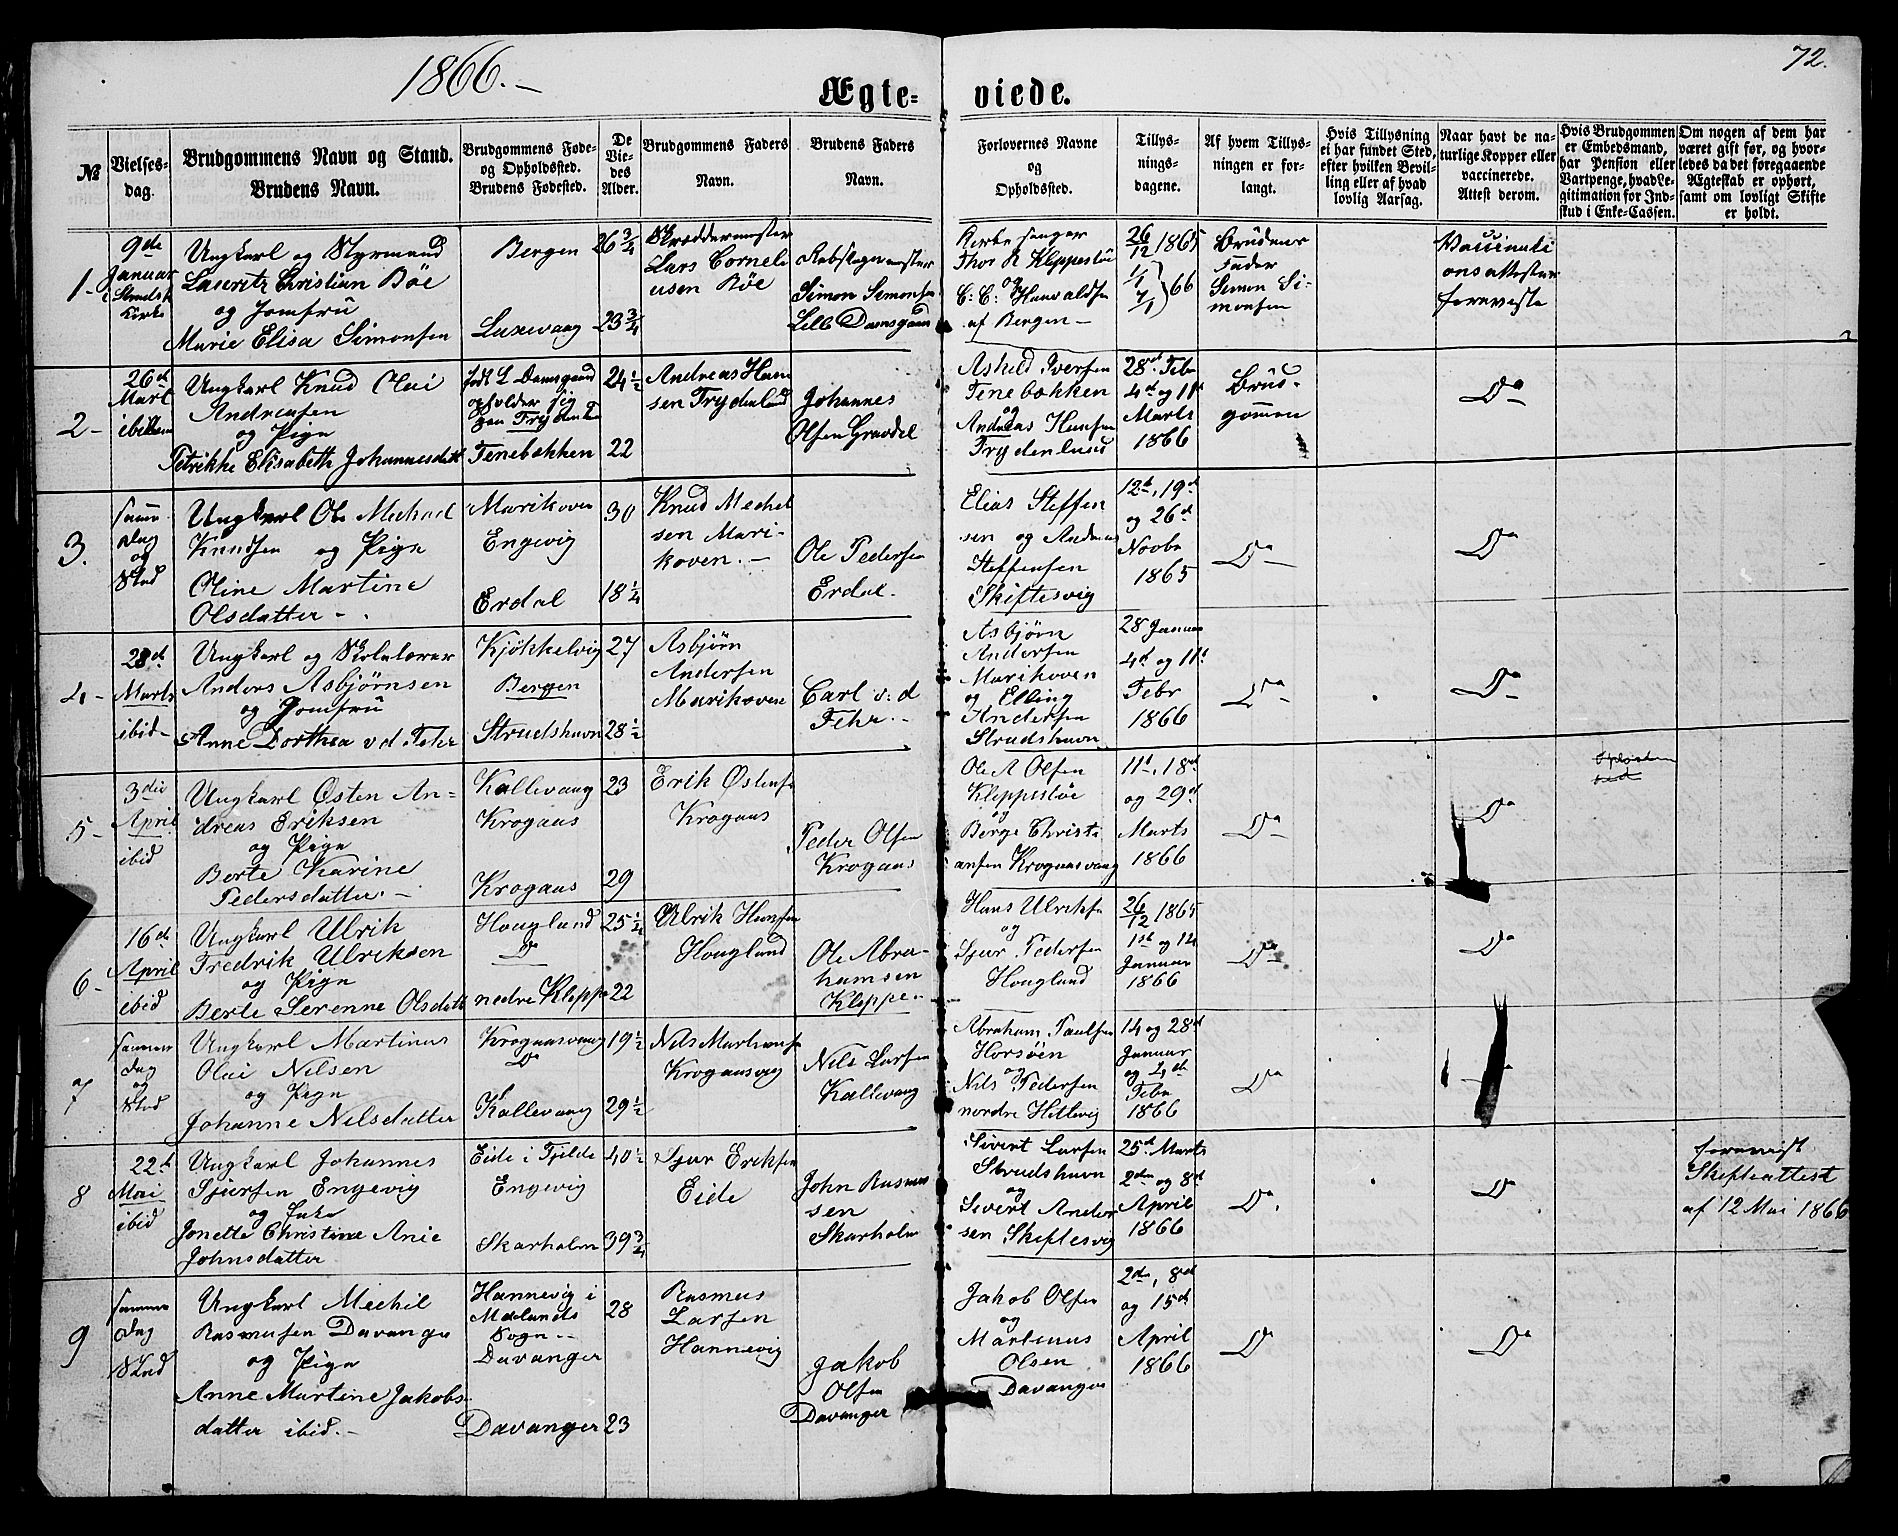 1866.–
72.
Ægte= viede.
№
Vielses=
dag.
Brudgommens Navn og Stand.
Brudens Navn.
Brudgommens Føde=
og Opholdssted.
Brudens Fødested.
De
Vie=
des
Alder.
Brudgommens Faders
Navn.
Brudens Faders
Navn.
Forlovernes Navne
og
Opholdssted.
Tillys=
nings=
dagene.
Af hvem Tillys=
ningen er for=
langt.
Hvis Tillysning
ei har fundet Sted,
efter hvilken Bevil=
ling eller af hvad
lovlig Aarsag.
Naar havt de na=
turlige Kopper eller
vaccinerede.
Attest derom.
Hvis Brudgommen
er Embedsmand,
har Pension eller
Vartpenge, hvad Le=
gitimation for Ind=
skud i Enke-Cassen.
Om nogen af dem har
været gift før, og hvor=
ledes da det foregaaende
Ægteskab er ophørt,
samt om lovligt Skifte
er holdt.
1-
9de
Januar
Kirke
Ungkarl og Styrmand
Lauritz Christian Bøe
og Jomfru
Marie Elisa Simonsen
Bergen
Laxevaag
26 3/4
23 3/4
Skræddermester
Lars Corneli
usen Bøe
Simon Simonsen
Lille Damsgaard
Kirkesanger
Thor R Kleppestøe
og
C: C: Haavaldsen
af Bergen –
26/12 1865
1/1
7/1 } 66
Brudens
Fader
Simon Si
monsen
Vaccinati
onsattester
foreviste
2-
26d
Mart
ibidem
Ungkarl Knud Olai
Andreasen
og Pige
Petrikke Elisabeth Johannesdatt
født L Damsgaard
opholder sig
paa Frydenl
Tenebækken
24 1/2
22
Andreas Han
sen Frydenlund
Johannes
Olsen Gravdal
Askild Iversen
Tenebækken
og
Andreas Hansen
Frydenlund
28de Febr
4d og 11t
Marts
1866
Brud-
gommen
Do
3.
samme
Dag
og
Sted
Ungkarl Ole Michael
Knudsen og Pige
Oline Martine
Olsdatter –
Marikoven
Engevig
Erdal
30
18 1/4
Knud Michel
sen Mari-
koven. –
Ole Pedersen
Erdal.
Elias Steffen
sen og Andreas
Steffensen
Skiftesvig
12t, 19d
og 26d
Novbr
1865
Do
Do
4-
28d
Marts
ibid–
Ungkarl og Skolelærer
Anders Asbjørnsen
og Jomfru
Anne Dorthea v d Fehr
Kjøkkelvig
Bergen
Strudshavn
27
28 1/2
Asbjørn
Andersen
Marikoven
Carl v: d
Fehr. –
Asbjørn
Andersen
Marikoven
og Elling
Andersen
Strudshavn
28 Januar
4d og 11t
Febr
1866
Do
Do
5-
3die
April
ibid
Ungkarl Østen An-
dreas Eriksen
og Pige
Berte Karine
Pedersdatter. –
Kallevaag
Krogaas
Krogaas
23
29
Erik Østensen
Krogaas
Peder Olsen
Krogaas
Ole A Olsen
Kleppestøe
og
Berge Christi
ansen Krogaasvaag
11t, 18d
og 29d
Marts
1866
Do
Do
6-
16d
April
ibid
Ungkarl Ulrik
Fredrik Ulriksen
og Pige
Berte Serenne Olsdatt
Hougland
Do
nedre Kleppe
25 1/4
22
Ulrik Hansen
Hougland
Ole Abra-
hamsen
Kleppe–
Hans Ulriksen
og
Sjur Pedersen
Hougland
26/12 1865
1st og 14
Januar
1866
Do
Do
7
sammen
Dag
og
Sted
Ungkarl Martinus
Olai Nilsen
og Pige
Johanne Nilsdatter
Krogaasvaag
Do
Kallevaag
19 1/2
29 1/2
Nils Martinsen
Krogaasvaag
Nils Larsen
Kallevaag
Abraham Paulsen
Horsøen
og
Nils Pedersen
nordre Hitlevig
14 og 28d
Januar
og 4de
Febr
1866
Do
8
22d
Mai
ibid
Ungkarl Johannes
Sjursen Engevig
og Enke
Jonette Christine Anie
Johnsdatter
Eide i Fjelde
Engevig
Skarholm
40 1/2
39 3/4
Sjur Eriksen
Eide
John Rasmus
sen
Skarholm
Sivert Larsen
Strudshavn
og
Sivert Ander
sen Skiftesvig
25d Marts
2den og 8d
April
1866
Do.
Do
forevist
Skifteattest
af 12 Mai 1866
9
samme
Dag
Sted
Ungkarl Michil
Rasmusen Davanger
og Pige
Anne Martine Jakobs-
datter ibid. –
Hannevig i
Mælands
Sogn –
Davanger
Davanger
28
23
Rasmus
Larsen
Hannevig
Jakob
Olsen
Davanger
Jakob Olsen
og
Martinus
Olsen
Davanger
2den, 8d
og 15d
April
1866
Do
Do